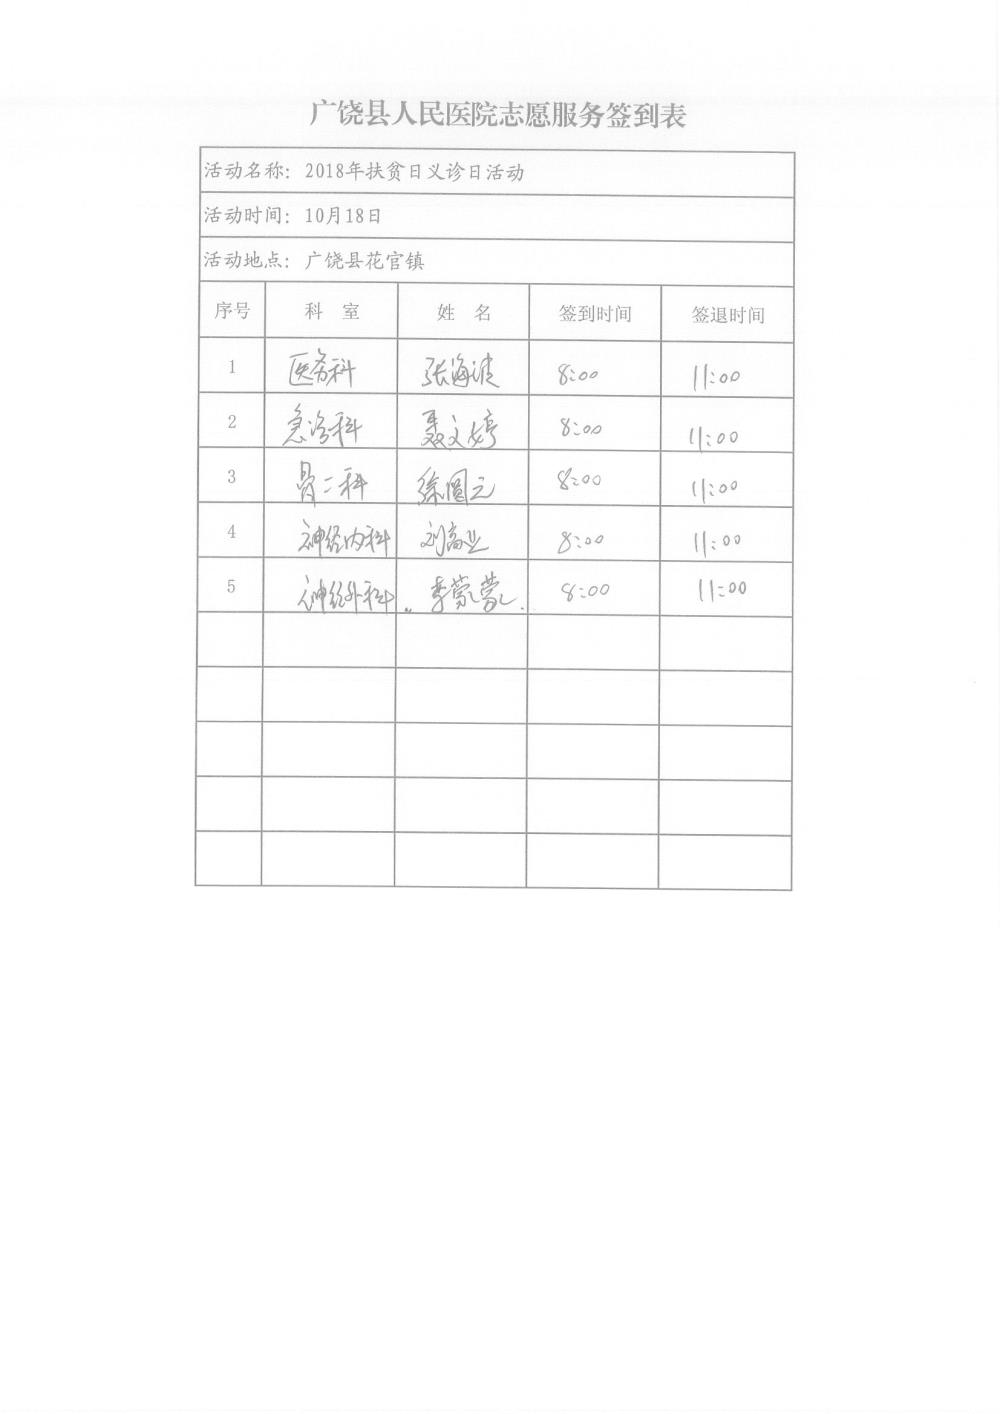 广饶县人民医院志愿服务签到表
活动名称：2018年扶贫日义诊日活动
活动时间：10月18日
活动地点：广饶县花官镇
序号 科 室 姓 名 签到时间 签退时间
1 医务科 张海波 8:00 11:00
2 急诊科 聂文婷 8:00 11:00
3 骨二科 徐圆元 8:00 11:00
4 神经内科 刘高业 8:00 11:00
5 神经外科 李蒙蒙 8:00 11:00